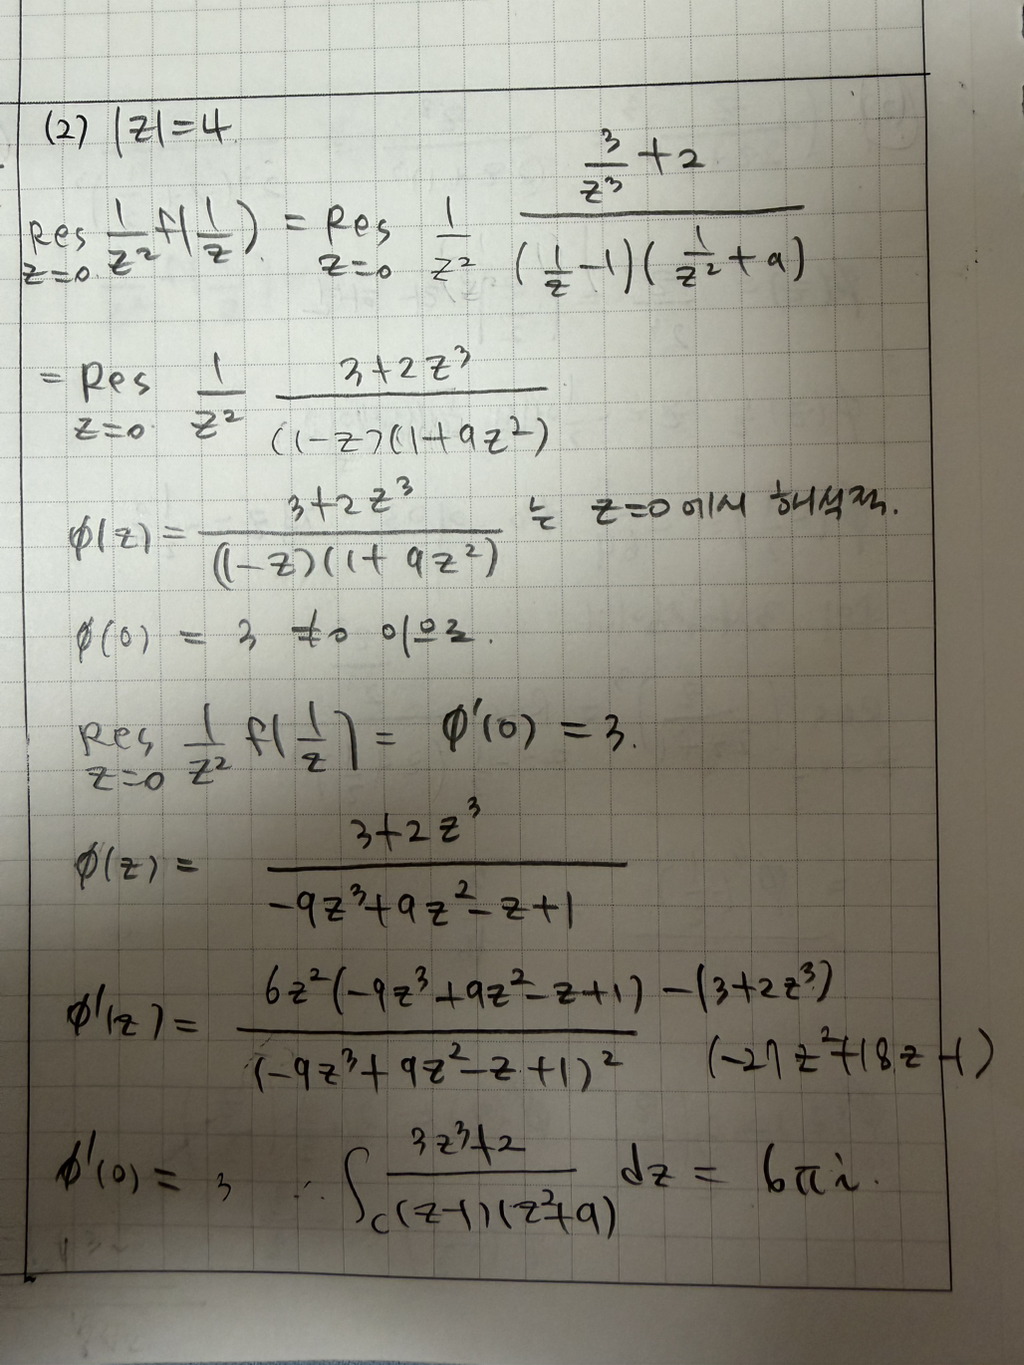 (2) |z|=4.
Res_{z=0} \frac{1}{z^2} f(\frac{1}{z}) = Res_{z=0} \frac{1}{z^2} \frac{\frac{3}{z^3}+2}{(\frac{1}{z}-1)(\frac{1}{z^2}+9)}
= Res_{z=0} \frac{1}{z^2} \frac{3+2z^3}{(1-z)(1+9z^2)}
∅(z) = \frac{3+2z^3}{(1-z)(1+9z^2)} 는 z=0에서 해석적.
∅(0) = 3 ≠0 이므로.
Res_{z=0} \frac{1}{z^2} f(\frac{1}{z}) = ∅'(0) = 3.
∅(z) = \frac{3+2z^3}{-9z^3+9z^2-z+1}
∅'(z) = \frac{6z^2(-9z^3+9z^2-z+1) -(3+2z^3)(-27z^2+18z-1)}{(-9z^3+9z^2-z+1)^2}
∅'(0) = 3 ∴ ∫_C \frac{3z^3+2}{(z-1)(z^2+9)} dz = 6πi.